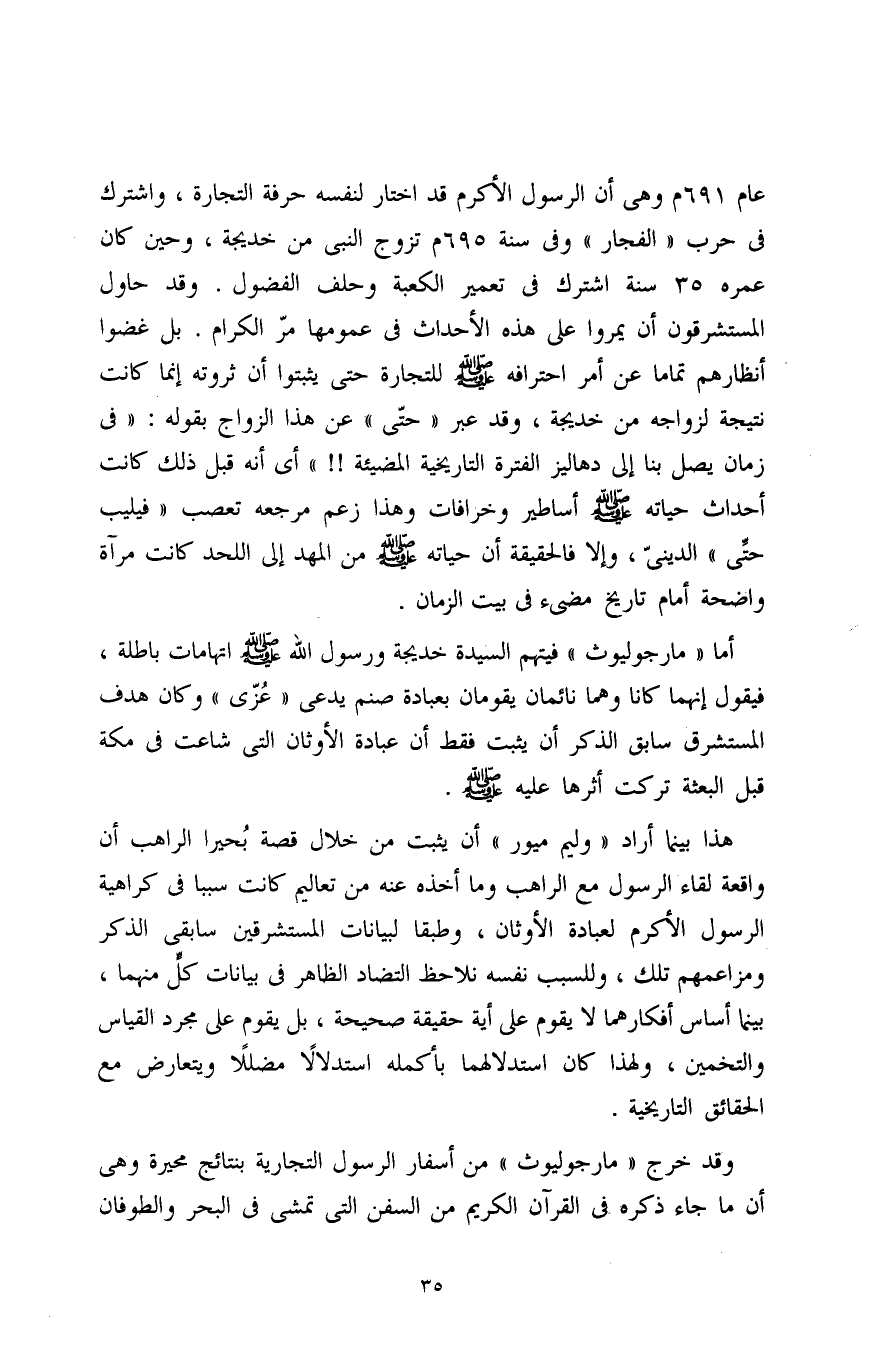 عام ٦٩١م وهى أن الرسول الأكرم قد اختار لنفسه حرفة التجارة ، واشترك
فى حرب « الفجار » وفى سنة ٦٩٥م تزوج النبى من خديجة ، وحين كان
عمره ٣٥ سنة اشترك فى تعمير الكعبة وحلف الفضول . وقد حاول
المستشرقون أن يمروا على هذه الأحداث فى عمومها مرّ الكرام . بل غضوا
أنظارهم تماما عن أمر احترافه ﷺ للتجارة حتى يثبتوا أن ثروته إنما كانت
نتيجة لزواجه من خديجة ، وقد عبر « حتّى » عن هذا الزواج بقوله : « فى
زمان يصل بنا إلى دهاليز الفترة التاريخية المضيئة !! » أى أنه قبل ذلك كانت
أحداث حياته ﷺ أساطير وخرافات وهذا زعم مرجعه تعصب « فيليب
حتِّى » الدينىّ ، وإلا فالحقيقة أن حياته ﷺ من المهد إلى اللحد كانت مرآة
واضحة أمام تاريخ مضىء فى بيت الزمان .
أما « مارجوليوث » فيتهم السيدة خديجة ورسول الله ﷺ اتهامات باطلة ،
فيقول إنهما كانا وهما نائمان يقومان بعبادة صنم يدعى « عُزّى » وكان هدف
المستشرق سابق الذكر أن يثبت فقط أن عبادة الأوثان التى شاعت فى مكة
قبل البعثة تركت أثرها عليه ﷺ .
هذا بينما أراد « وليم ميور » أن يثبت من خلال قصة بُحيرا الراهب أن
واقعة لقاء الرسول مع الراهب وما أخذه عنه من تعاليم كانت سببا فى كراهية
الرسول الأكرم لعبادة الأوثان ، وطبقا لبيانات المستشرقين سابقى الذكر
ومزاعمهم تلك ، وللسبب نفسه نلاحظ التضاد الظاهر فى بيانات كلٍّ منهما ،
بينما أساس أفكارهما لا يقوم على أية حقيقة صحيحة ، بل يقوم على مجرد القياس
والتخمين ، ولهذا كان استدلالهما بأكمله استدلالًا مضللًا ويتعارض مع
الحقائق التاريخية .
وقد خرج « مارجوليوث » من أسفار الرسول التجارية بنتائج محيرة وهى
أن ما جاء ذكره فى القرآن الكريم من السفن التى تمشى فى البحر والطوفان
٣٥